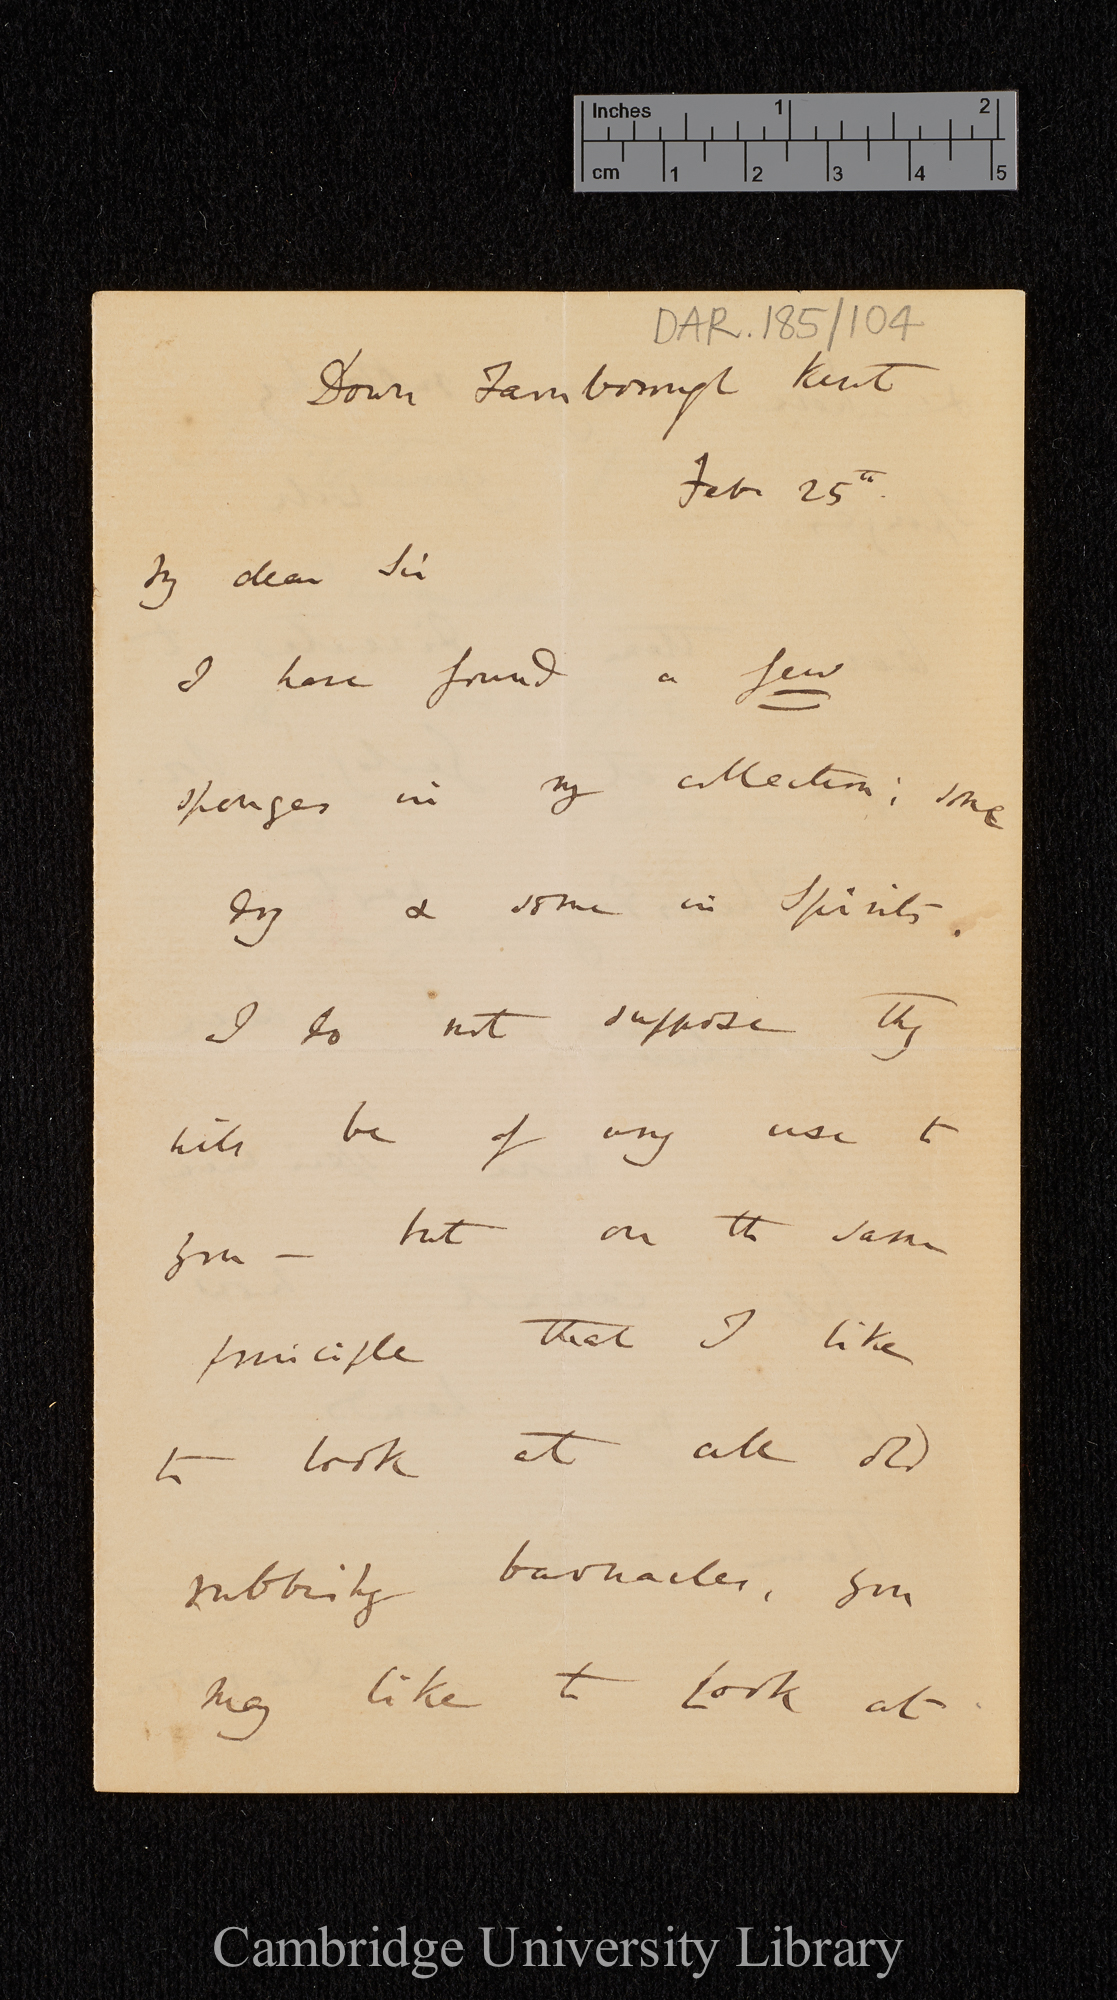 Inches 1 2
cm 1 2 3 4 5
DAR.185/104
Down Farnborough Kent
Feb. 25th.
My dear Sir
I have found a few
sponges in my collection; some
dry & some in spirits.
I do not suppose they
will be of any use to
you — but on the same
principle that I like
to look at all old
rubbishy barnacles, you
may like to look at
Cambridge University Library